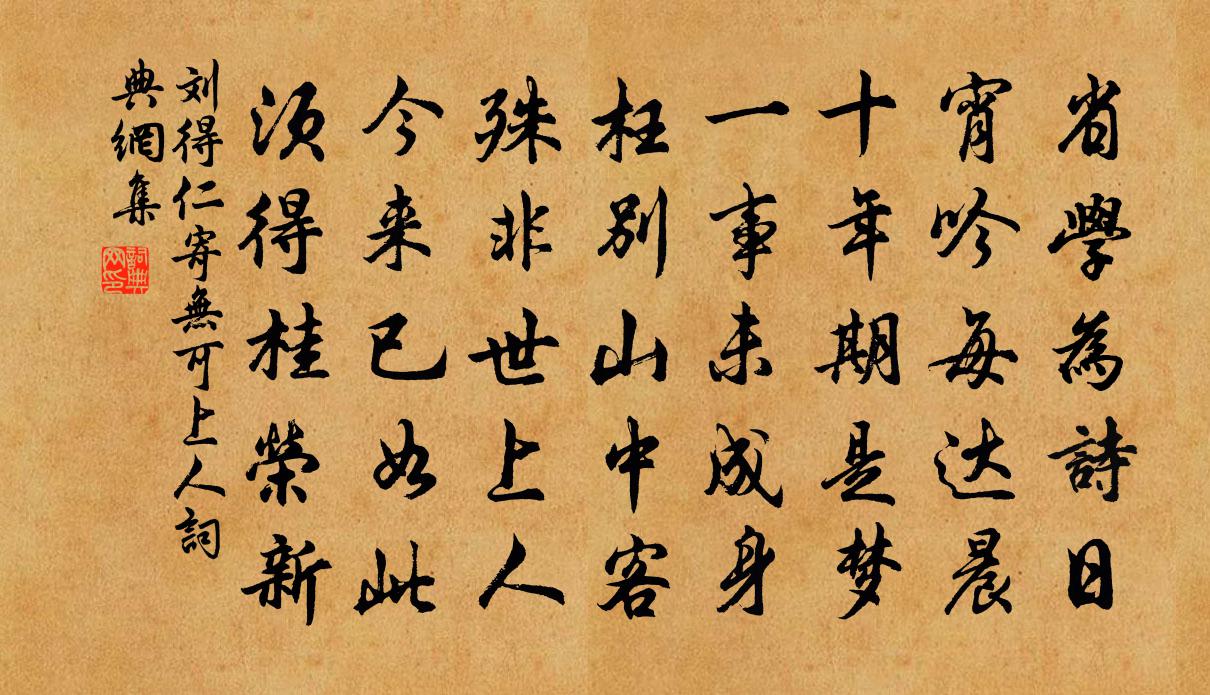 省學為詩日
宵吟每达晨
十年期是梦
一事未成身
枉别山中客
殊非世上人
今来已如此
须得桂榮新
刘得仁寄無可上人詞
典網集
詞典
网印